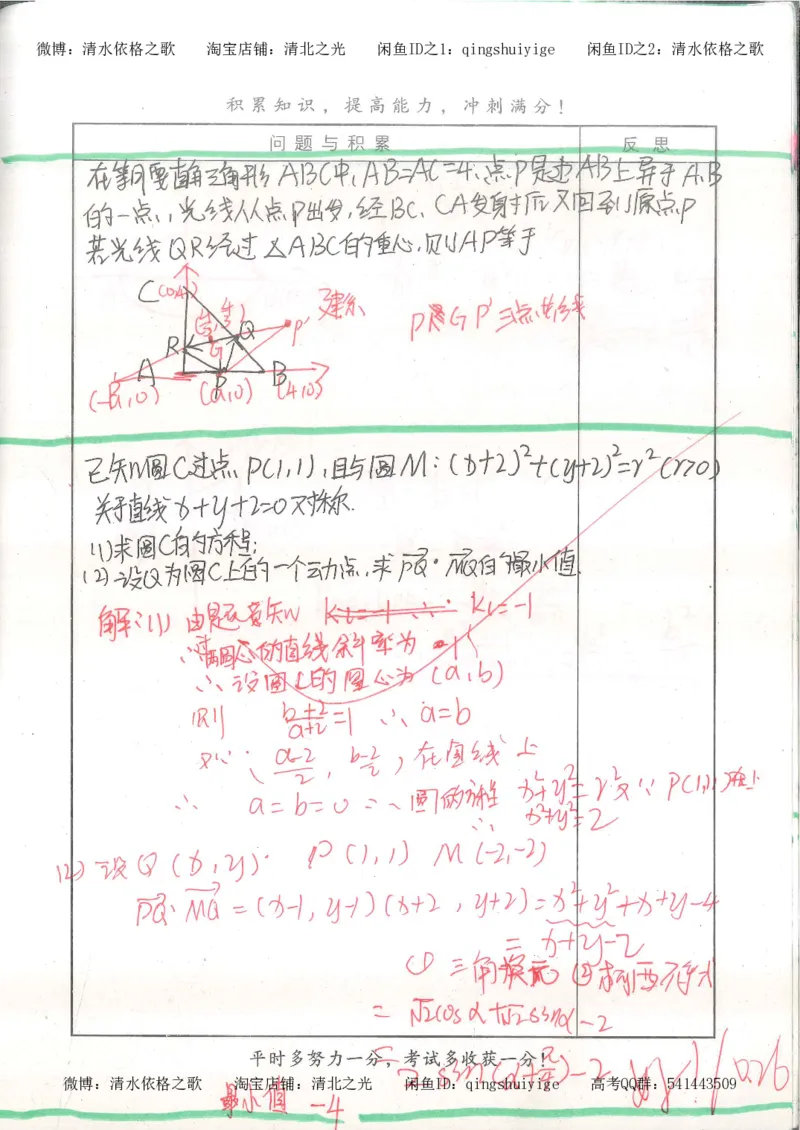 微博：清水依格之歌 淘宝店铺：清北之光 闲鱼ID之1：qingshuiyige 闲鱼ID之2：清水依格之歌
积累知识，提高能力，冲刺满分！
问题与积累 反思
在等腰直角三角形ABC中，AB=AC=4，点P是边AB上异于A、B
的一点，光线从点P出发，经BC、CA发射后又回到原点P
若光线QR经过△ABC的重心，则AP等于
C(0,4)
(4/3,4/3) 建系
Q P' P'RGP'三点共线
R G
A P B
(-a,0) (a,0) (4,0)
已知圆C过点P(1,1)，且与圆M：(x+2)²+(y+2)²=r²(r>0)
关于直线x+y+2=0对称.
(1)求圆C的方程；
(2)设Q为圆C上的一个动点，求PQ·MQ的最小值.
解：(1) 由题意知 k₁=-1
∴过两圆心的直线斜率为 1
∴设圆C的圆心为(a,b)
则 (b+2)/(a+2)=1 ∴a=b
又∵ (a-2)/2, (b-2)/2, 在直线上
∴ a=b=0 ∴圆的方程 x²+y²=r² 又∵P(1,1)在上
∴ x²+y²=2
(2)设Q(x,y) P(1,1) M(-2,-2)
PQ·MQ=(x-1,y-1)(x+2,y+2)=x²+y²+x+y-4
=x+y-2
① 三角换元 ②柯西不等式
=√2cosα+√2sinα-2
平时多努力一分，考试多收获一分！
=2sin(α+π/4)-2
微博：清水依格之歌 淘宝店铺：清北之光 闲鱼ID：qingshuiyige 高考QQ群：541443509
最小值 -4